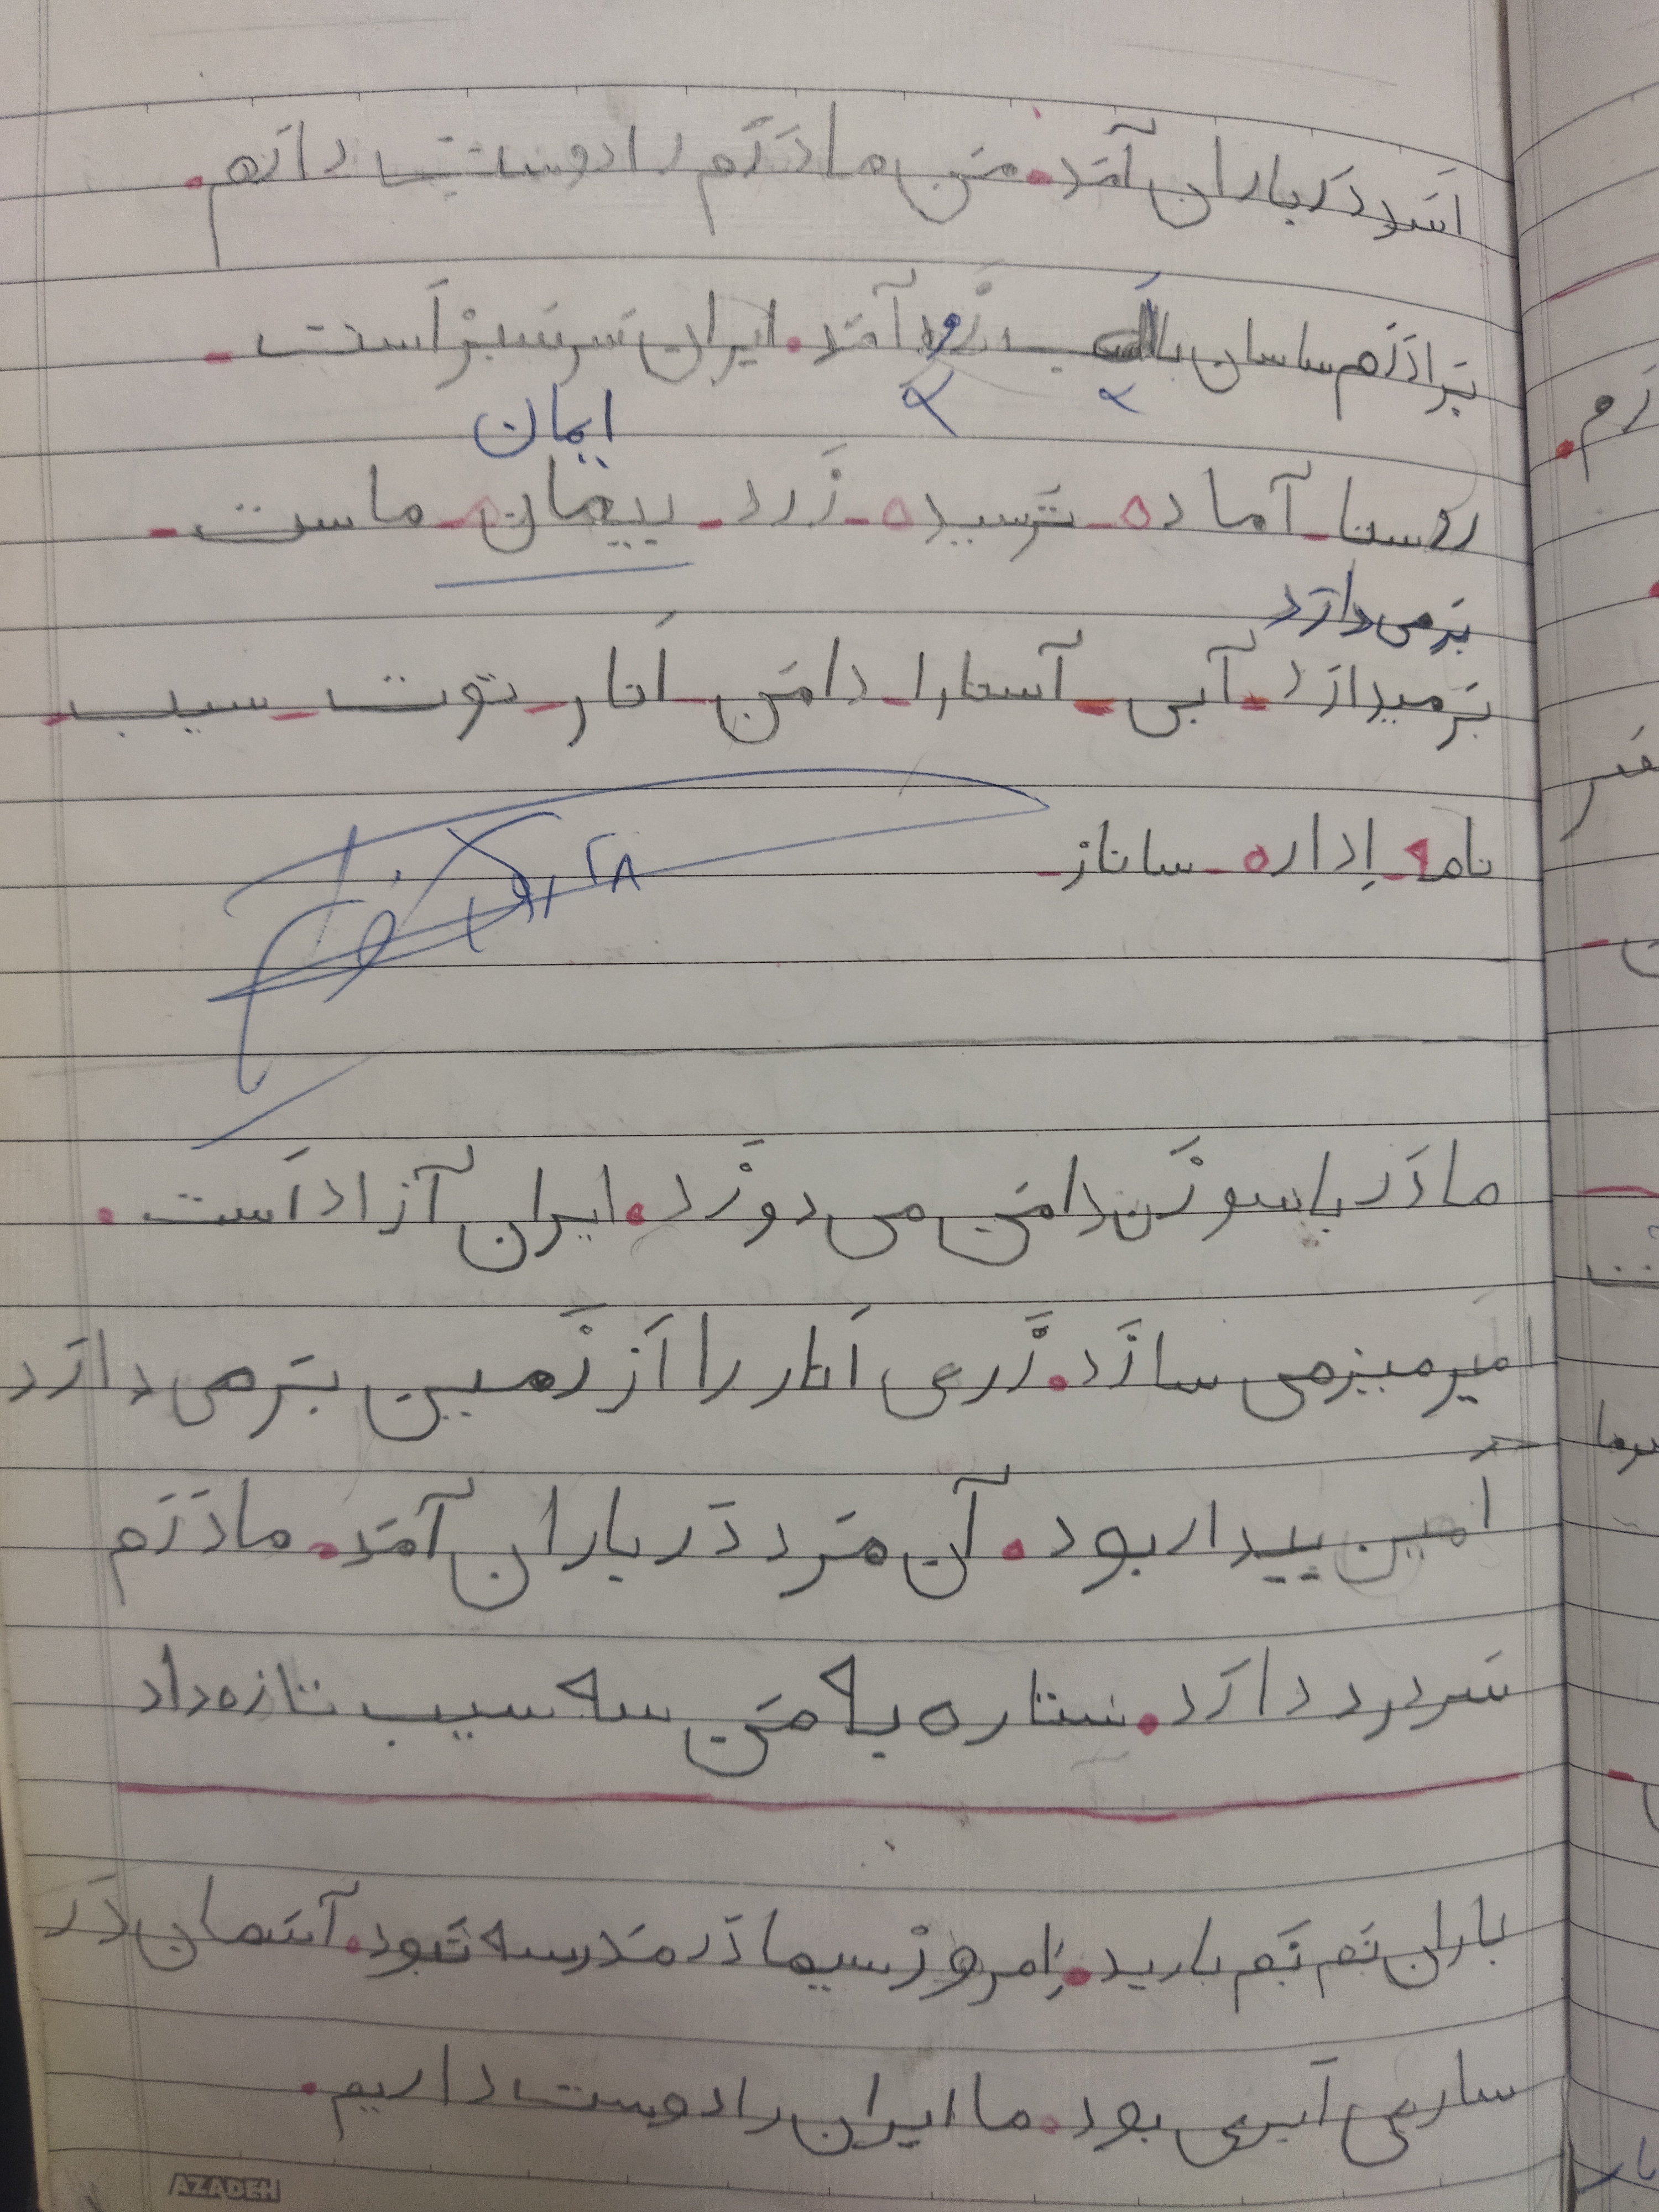 اَسَد دَر باران آمَد. مَن مادَرَم را دوست دارَم.
بَرادَرَم ساسان با اَسب زود آمَد. ایران سَرسَبز اَست.
ایمان
روستا - آماده - تَرسیده - زَرد - پیمان - ماست -
بَرمی‌دارَد
بَرمیدارَد - آبی - آستارا - دامَن - اَنار - توت - سیب -
نامه - اِداره - ساناز -
۲۸
مادَر با سوزَن دامَن می دوزَد. ایران آزاد اَست.
اَمیر میز می سازَد. زَری اَنار را اَز زَمین بَر می دارَد
اَمین بیدار بود. آن مَرد دَر باران آمَد. مادَرَم
سَردرد دارَد. ستاره به مَن سه سیب تازه داد
باران نَم نَم بارید. اِمروز سیما دَر مَدرسه نَبود. آسمان دَر
ساری اَبری بود. ما ایران را دوست داریم.
AZADEH